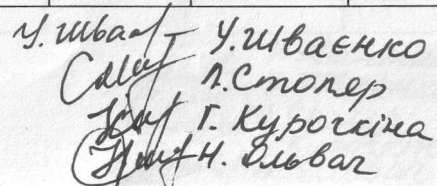 У. Шваєнко
Л. Столер
Г. Курочкіна
Н. Ольвач